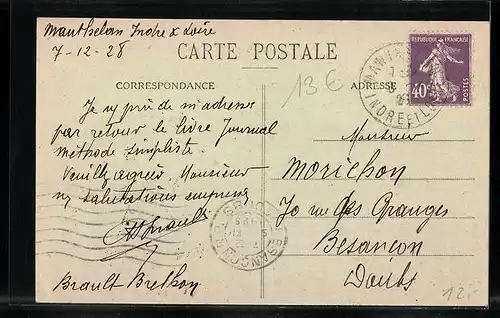 Manthelan Indre & Loire
7-12-28
CARTE POSTALE
CORRESPONDANCE
ADRESSE
13 €
40c
POSTES
INDRE ET LOIRE
Je vs prie de m'adresser
par retour le livre Journal
méthode simpliste.
Veuillez agréer Monsieur
mes salutations
Brault
Monsieur
Morichon
70 rue des Granges
Besançon
Doubs
BESANÇON
12.-